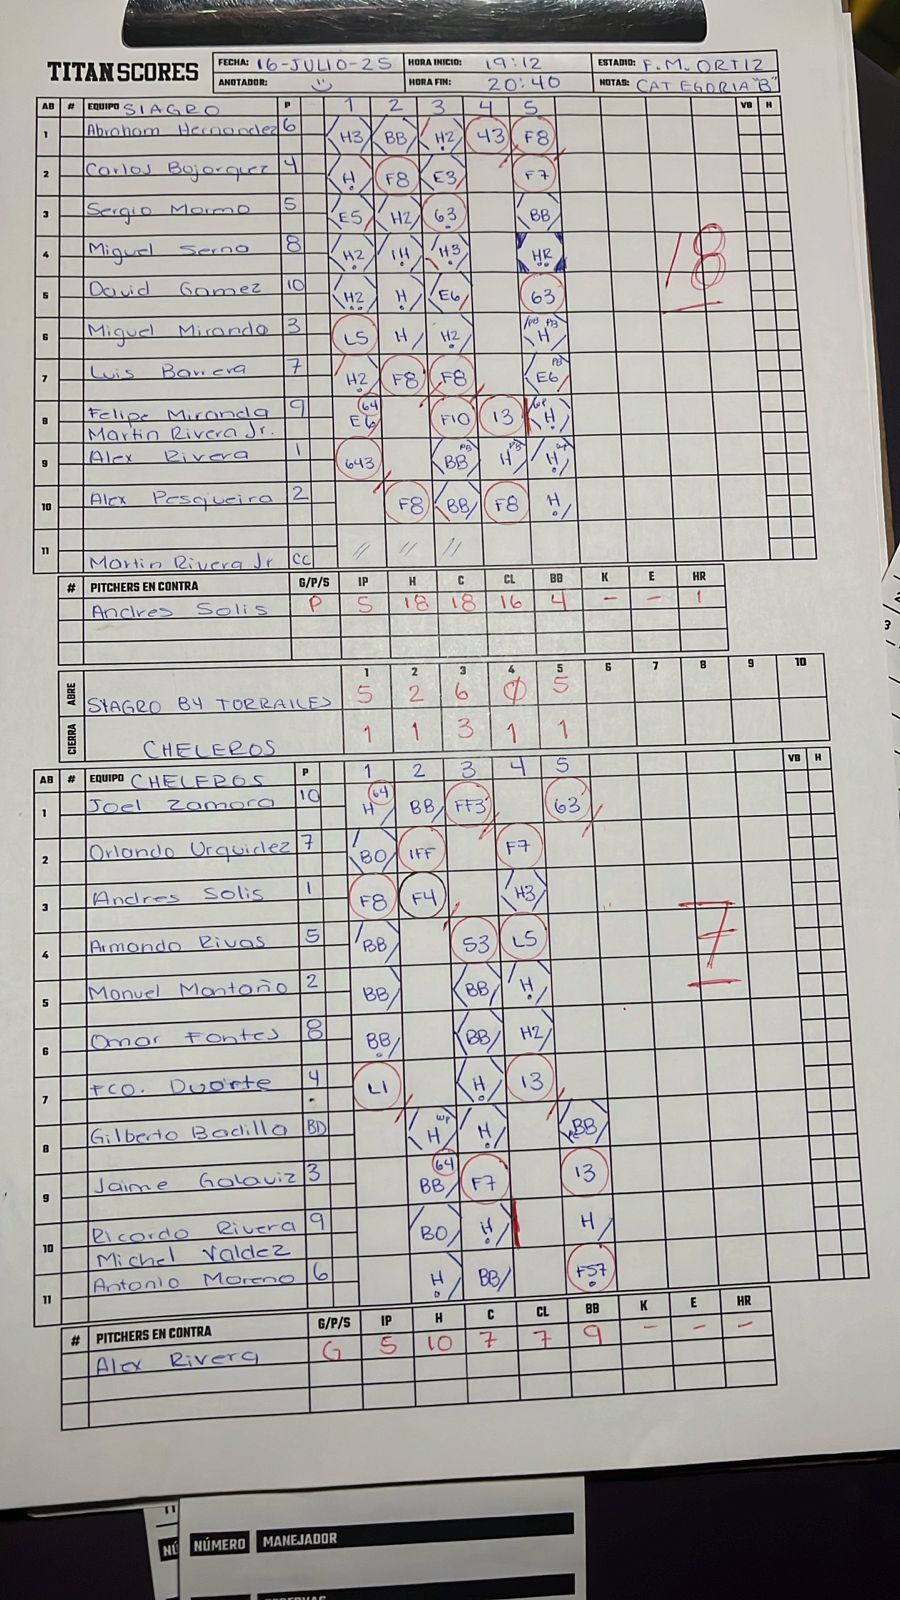 TITAN SCORES
FECHA: 16-JULIO-25 HORA INICIO: 19:12 ESTADIO: F.M. ORTIZ
ANOTADOR: HORA FIN: 20:40 NOTAS: CATEGORIA "B"
AB # EQUIPO SIAGRO P 1 2 3 4 5 VB H
1 Abraham Hernandez 6 H3 BB H2 43 F8
2 Carlos Bojorquez 4 H F8 E3 F7
3 Sergio Mormo 5 E5 H2 63 BB
4 Miguel Serno 8 H2 IH H3 HR
5 David Gamez 10 H2 H E6 63
18
6 Miguel Miranda 3 L5 H H2 PB PB H
7 Luis Barrera 7 H2 F8 F8 PB E6
8 Felipe Miranda 9 64 E6 F10 13 H
Martin Rivera Jr.
9 Alex Rivera 1 643 PB BB PB H WP H
10 Alex Pesqueira 2 F8 BB F8 H
11 Martin Rivera Jr CC // // //
# PITCHERS EN CONTRA G/P/S IP H C CL BB K E HR
Andres Solis P 5 18 18 16 4 - - 1
1 2 3 4 5 6 7 8 9 10
ABRE SIAGRO BY TORRAILES 5 2 6 0 5
CIERRA CHELEROS 1 1 3 1 1
AB # EQUIPO CHELEROS P 1 2 3 4 5 VB H
1 Joel Zamora 10 64 H BB FF3 63
2 Orlando Urquidez 7 BO IFF F7
3 Andres Solis 1 F8 F4 H3
4 Armando Rivas 5 BB 53 L5
7
5 Manuel Montaño 2 BB BB H
6 Omar Fontes 8 BB BB H2
7 FCO. Duarte 4 L1 H 13
8 Gilberto Badilla BD WP H H BB
9 Jaime Galaviz 3 64 BB F7 13
10 Ricardo Rivera 9 BO H H
Michel Valdez
11 Antonio Moreno 6 H BB F57
# PITCHERS EN CONTRA G/P/S IP H C CL BB K E HR
Alex Rivera G 5 10 7 7 9 - - -
NÚ
NÚMERO MANEJADOR